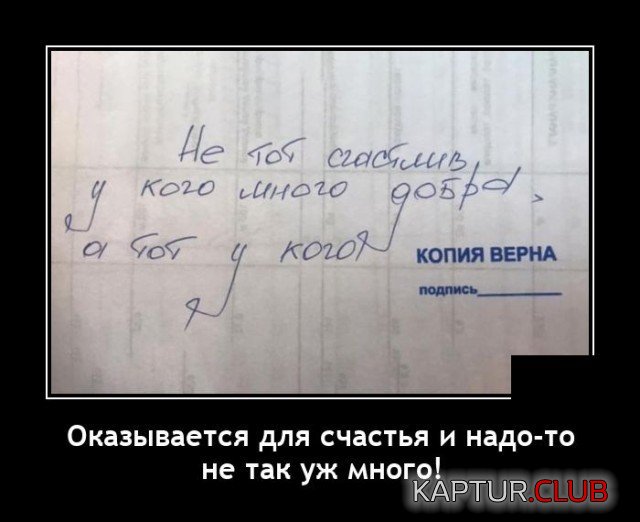 Не тот счастлив,
у кого много добра,
а тот у кого
КОПИЯ ВЕРНА
подпись
Оказывается для счастья и надо-то
не так уж много!
KAPTUR.CLUB